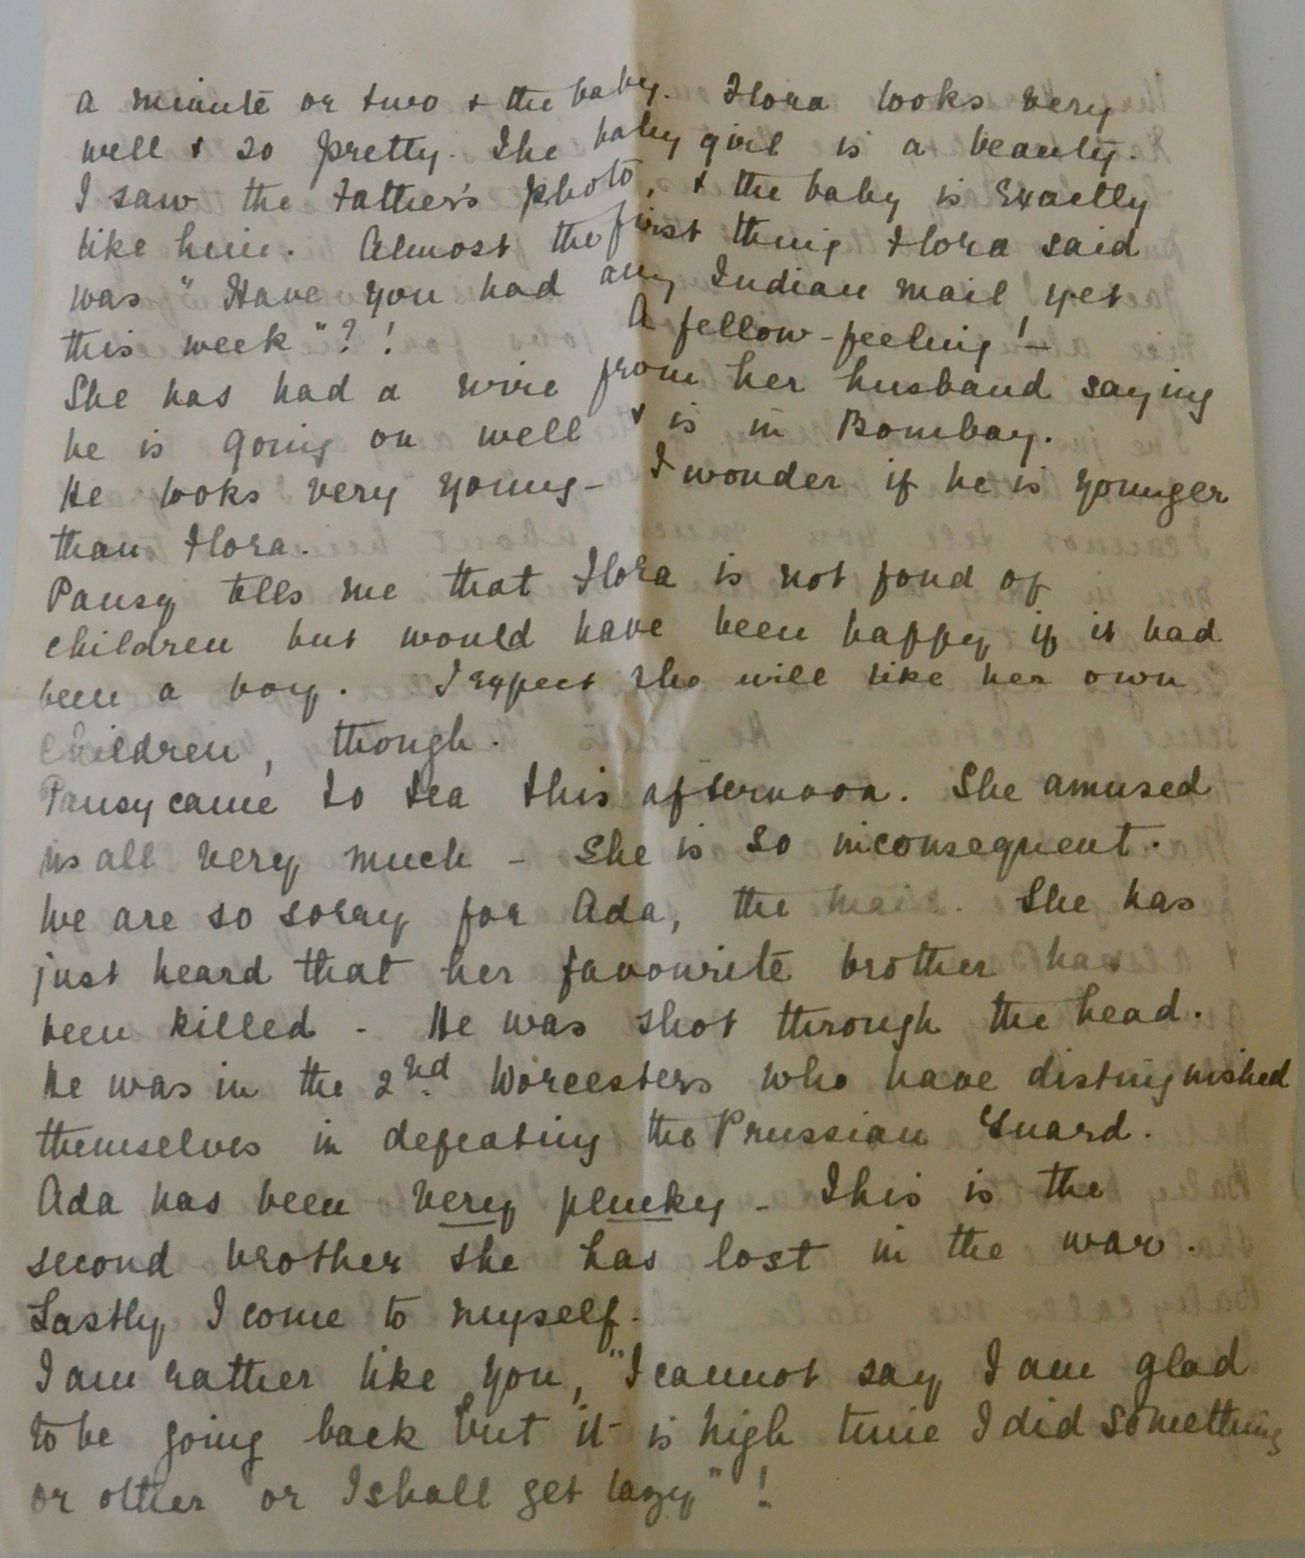 a minute or two & the baby. Flora looks very
well & so pretty. The baby girl is a beauty.
I saw the Father's photo, & the baby is Exactly
like him. Almost the first thing Flora said
was "Have you had any Indian mail yet
this week"?! A fellow-feeling!—
She has had a wire from her husband saying
he is going on well & is in Bombay.
He looks very young - I wonder if he is younger
than Flora.
Pansy tells me that Flora is not fond of
children but would have been happy if it had
been a boy. I expect she will like her own
children, though.
Pansy came to tea this afternoon. She amused
us all very much - She is so inconsequent.
We are so sorry for Ada, the maid. She has
just heard that her favourite brother has
been killed - He was shot through the head.
He was in the 2nd Worcesters who have distinguished
themselves in defeating the Prussian Guard.
Ada has been very plucky - This is the
second brother she has lost in the war.
Lastly I come to myself.
I am rather like you, "I cannot say I am glad
to be going back but it is high time I did something
or other or I shall get lazy"!